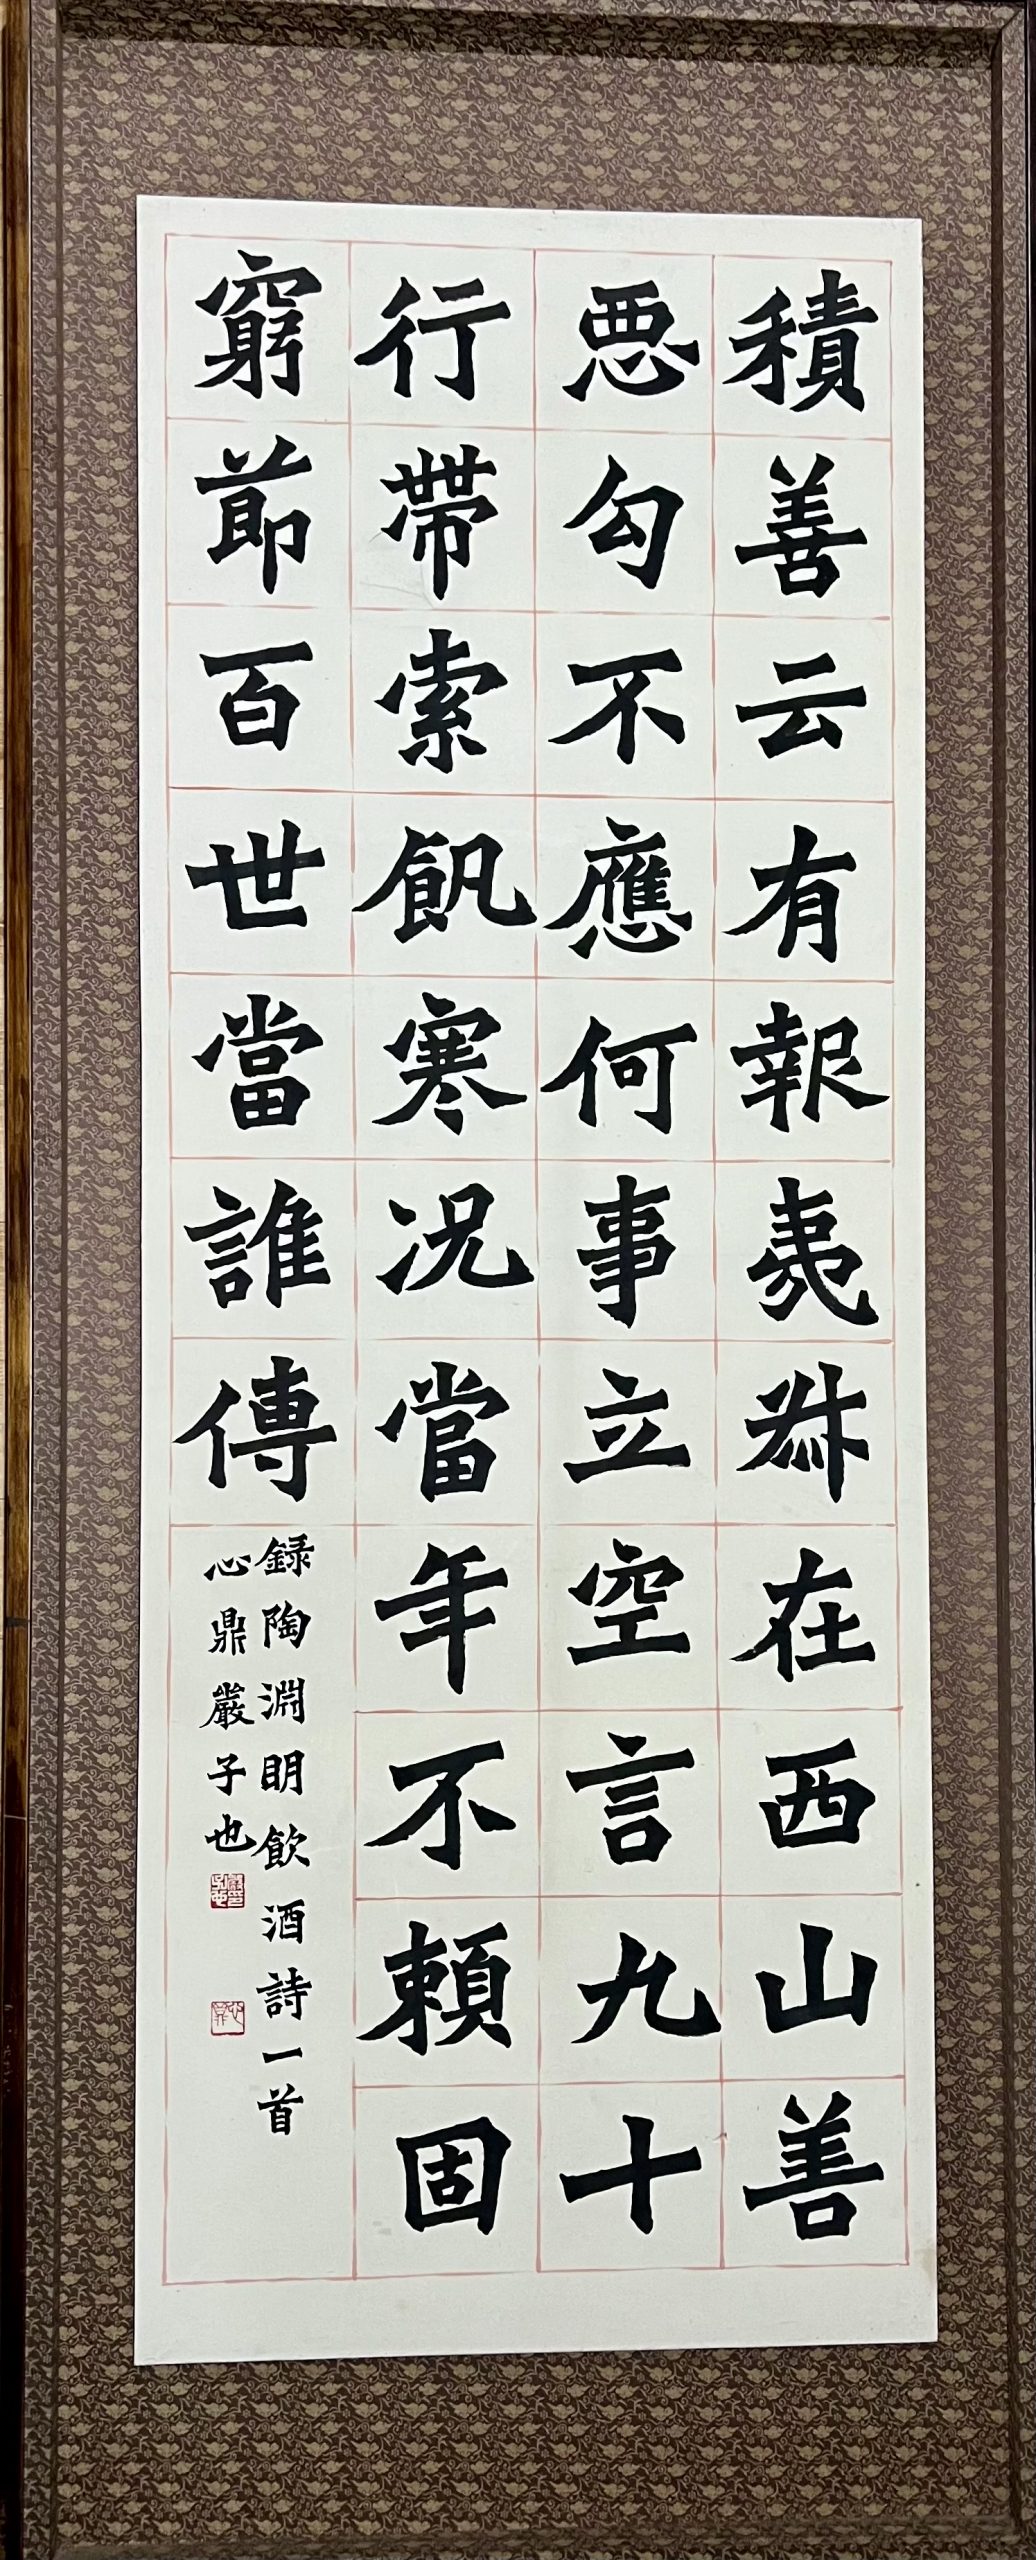 積善云有報夷叔在西山善
悪勾不應何事立空言九十
行帶索飢寒況當年不頼固
窮節百世當誰傳
録陶淵明飲酒詩一首
心鼎嚴子也